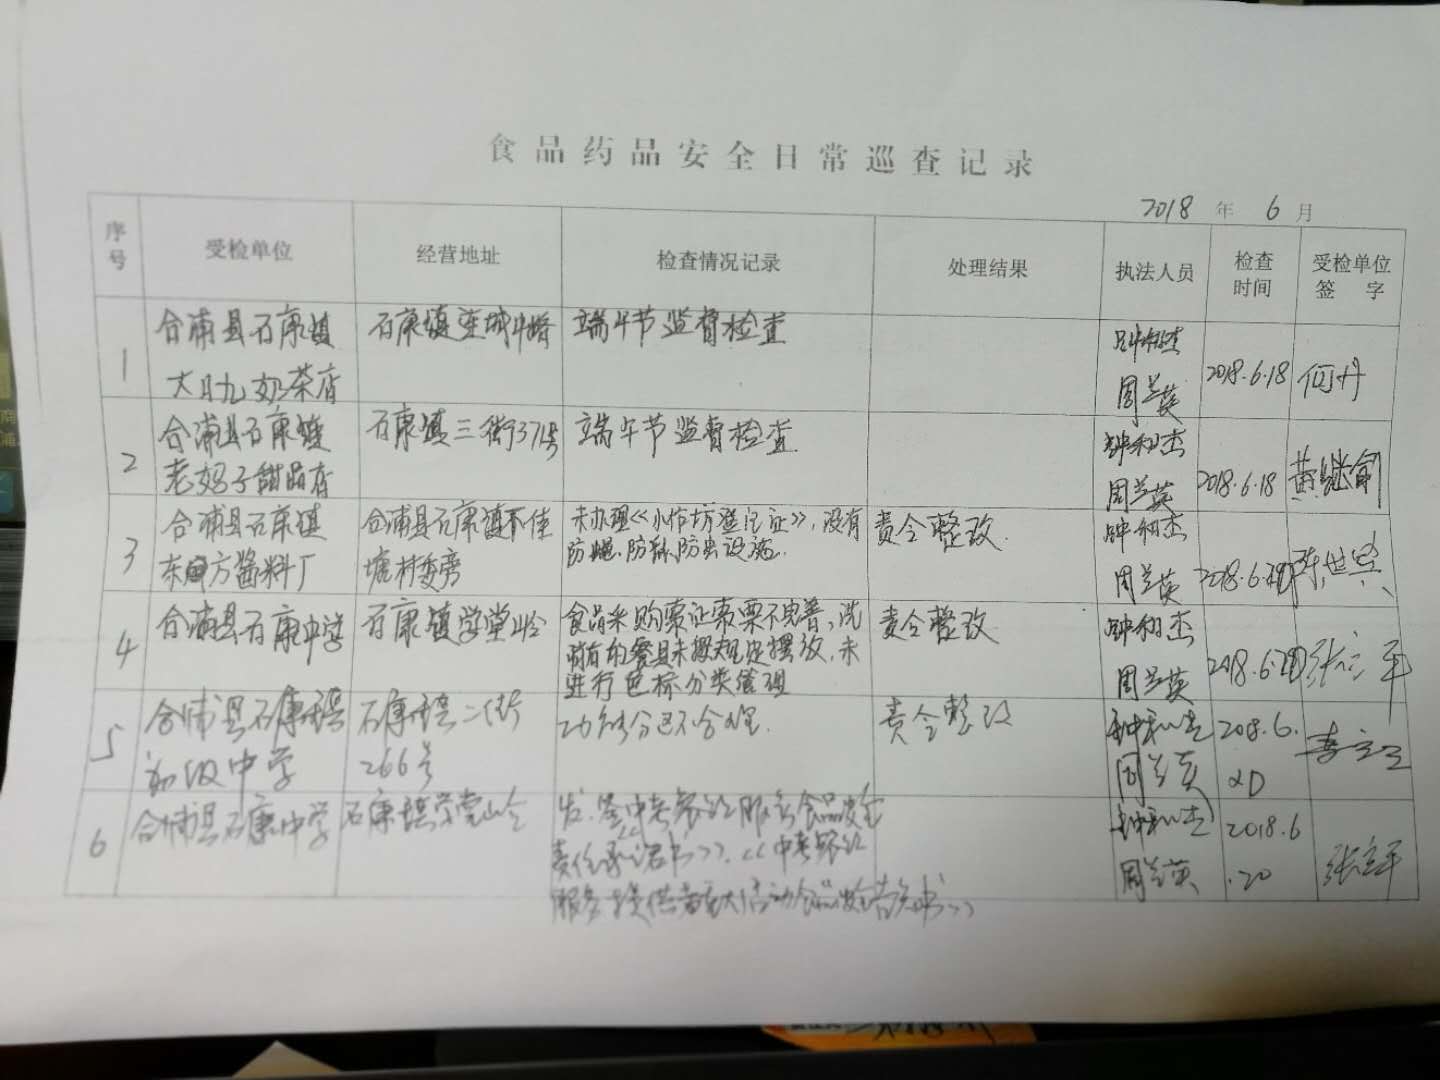 食品药品安全日常巡查记录
2018 年 6 月
序号 受检单位 经营地址 检查情况记录 处理结果 执法人员 检查时间 受检单位签字
1 合浦县石康镇 石康镇 端午节监督检查
大日九奶茶店 周兰英 2018.6.18 何丹
2 合浦县石康镇 石康镇三街371号 端午节监督检查 钟和杰
老妈子甜品店 周兰英 2018.6.18
3 合浦县石康镇 合浦县石康镇 未办理《小作坊登记证》,没有 责令整改 钟和杰
东 方酱料厂 塘村委旁 防蝇、防鼠、防虫设施. 周兰英
4 合浦县石康中学 石康镇学堂岭 食品采购索证索票不完善,洗 责令整改 钟和杰
的餐具未按规定摆放,未 周兰英 张立平
进行色标分类管理
5 合浦县石康镇 石康镇二街 功能分区不合理. 责令整改 钟和杰 2018.6.
初级中学 266号 周兰英 20
6 合浦县石康中学 石康镇学堂岭 发、签《中考餐饮服务食品安全 钟和杰 2018.6
责任承诺书》、《中考餐饮 周兰英 .20 张立平
服务提供者重大活动食品安全告知书》